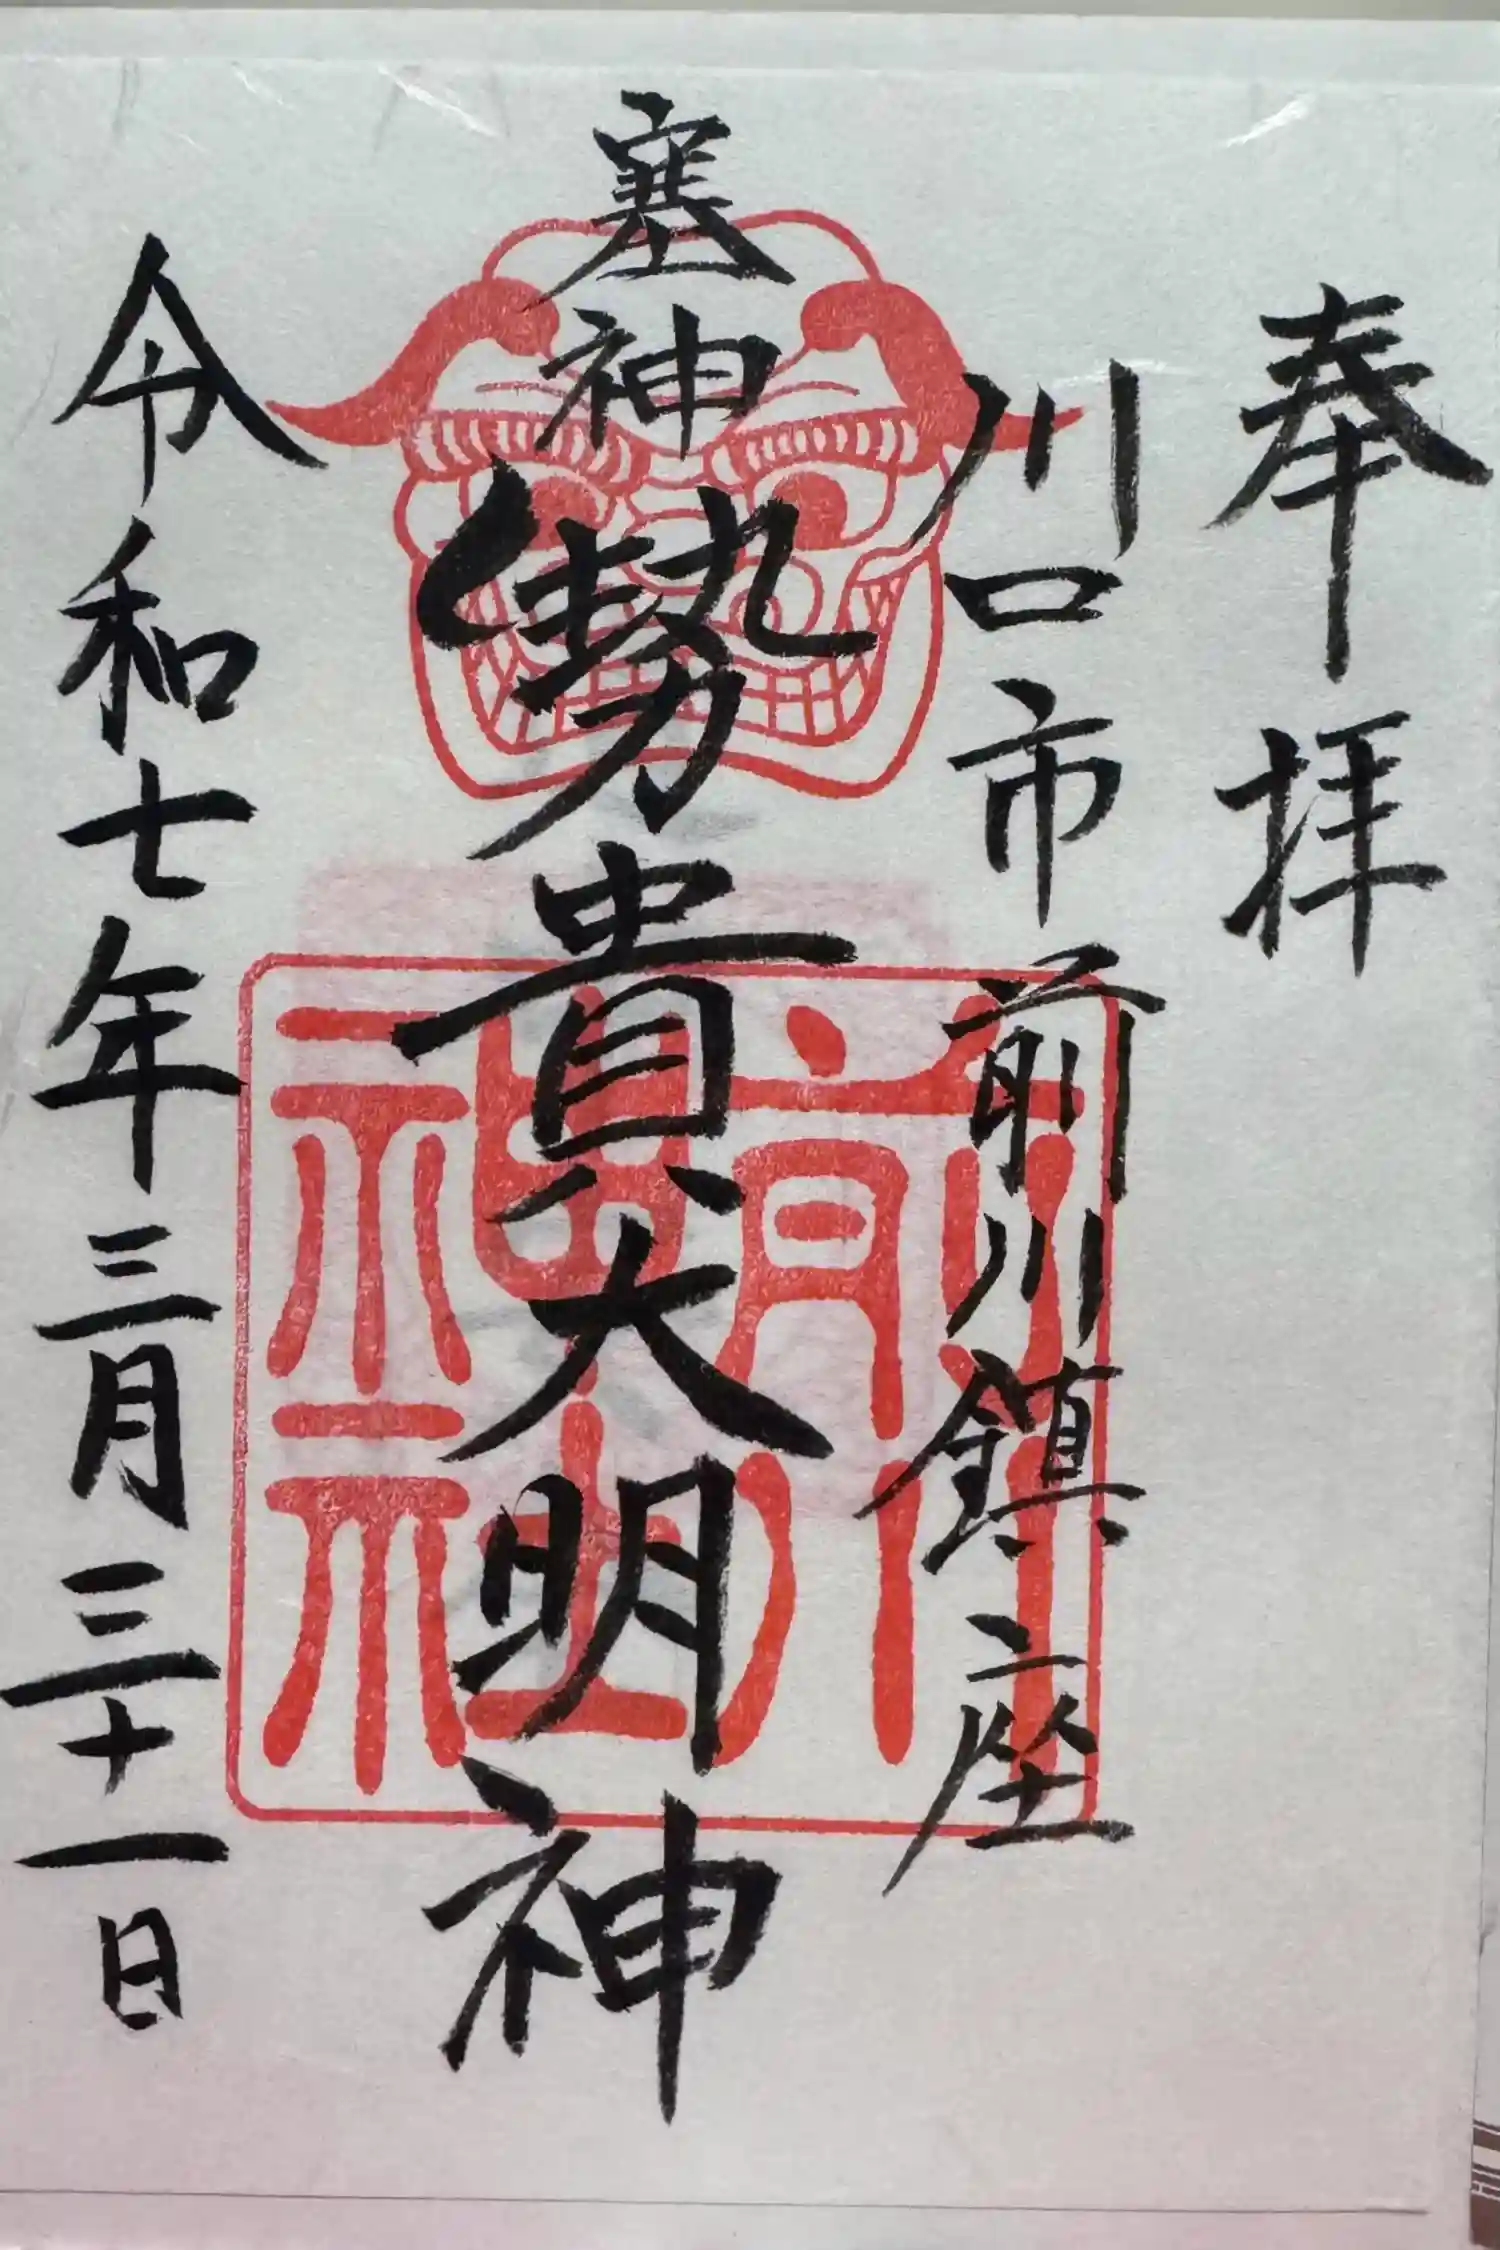 奉拝
川口市前川鎮座
塞神
勢貴大明神
令和七年三月三十一日
前川
神社